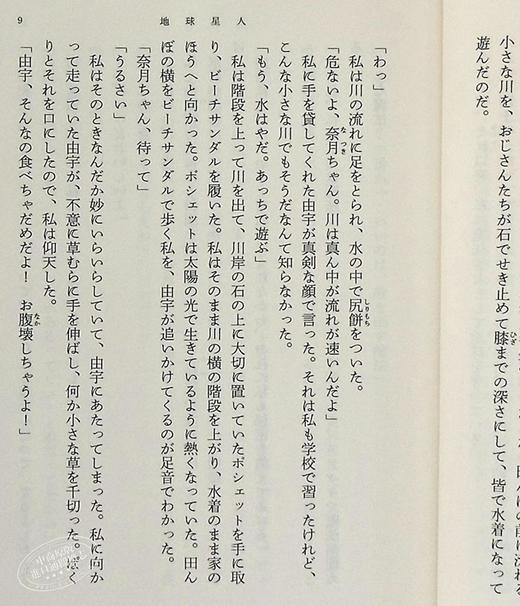 小さな川を、おじさんたちが石でせき止めて膝までの深さにして、皆で水着になって
遊んだのだ。
地球星人
9
「わっ」
私は川の流れに足をとられ、水の中で尻餅をついた。
「危ないよ、奈月ちゃん。川は真ん中が流れが速いんだよ」
私に手を貸してくれた由宇が真剣な顔で言った。それは私も学校で習ったけれど、
こんな小さな川でもそうだなんて知らなかった。
「もう、水はやだ。あっちで遊ぶ」
私は階段を上って川を出て、川岸の石の上に大切に置いていたポシェットを手に取
り、ビーチサンダルを履いた。私はそのまま川の横の階段を上がり、水着のまま家の
ほうへと向かった。ポシェットは太陽の光で生きているように熱くなっていた。田ん
ぼの横をビーチサンダルで歩く私を、由宇が追いかけてくるのが足音でわかった。
「奈月ちゃん、待って」
「うるさい」
私はそのときなんだか妙にいらいらしていて、由宇にあたってしまった。私に向か
って走っていた由宇が、不意に草むらに手を伸ばし、何か小さな草を千切った。ぱく
りとそれを口にしたので、私は仰天した。
「由宇、そんなの食べちゃだめだよ！　お腹壊しちゃうよ！」